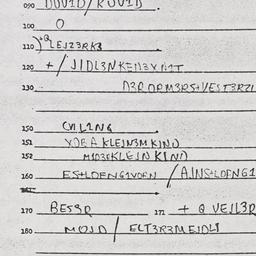 090 DUVID/RUVID.
100 O
110 )+Q LEJZ3RKB
120 +/JIDL3NKEN3XAIT
130 D3RORM3RS+VEST3RZI
150 CVIL1NG
151 YOEA KLEJN3M KIND
152 MID3RKLEJN KIND
160 ES+LOFNG1VORN/AJNS+LOFNG1
170 BES3R 171 + Q VEJL3R
180 MOJD/ELT3R3MEJDLI